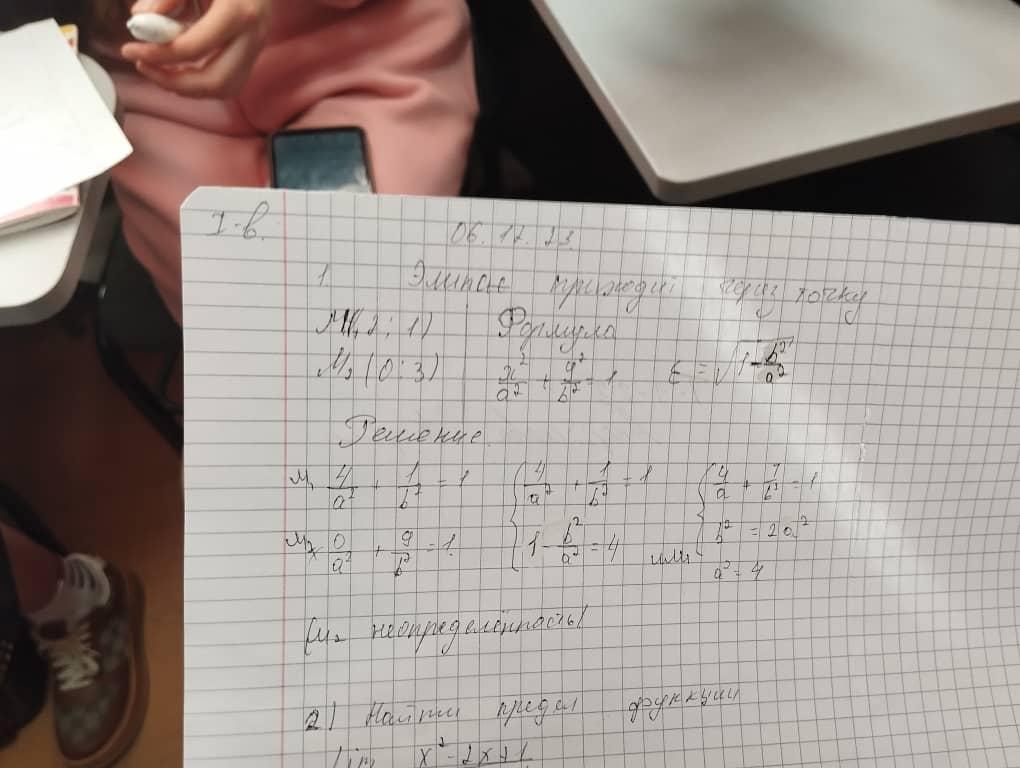 I-в. 06.12.23
1. Элипс проходит через точку
M1(2; 1) Формула
M2 (0; 3) x²/a² + y²/b² = 1 ε = √(1 - b²/a²)
Решение.
M1 4/a² + 1/b² = 1 { 4/a² + 1/b² = 1 { 4/a + 1/b² = 1
M2 0/a² + 9/b² = 1. 1 - b²/a² = 4 или b² = 2a²
a² = 4
M2 неопределённость!
2) Найти предел функции
lim x² - 2x + 1